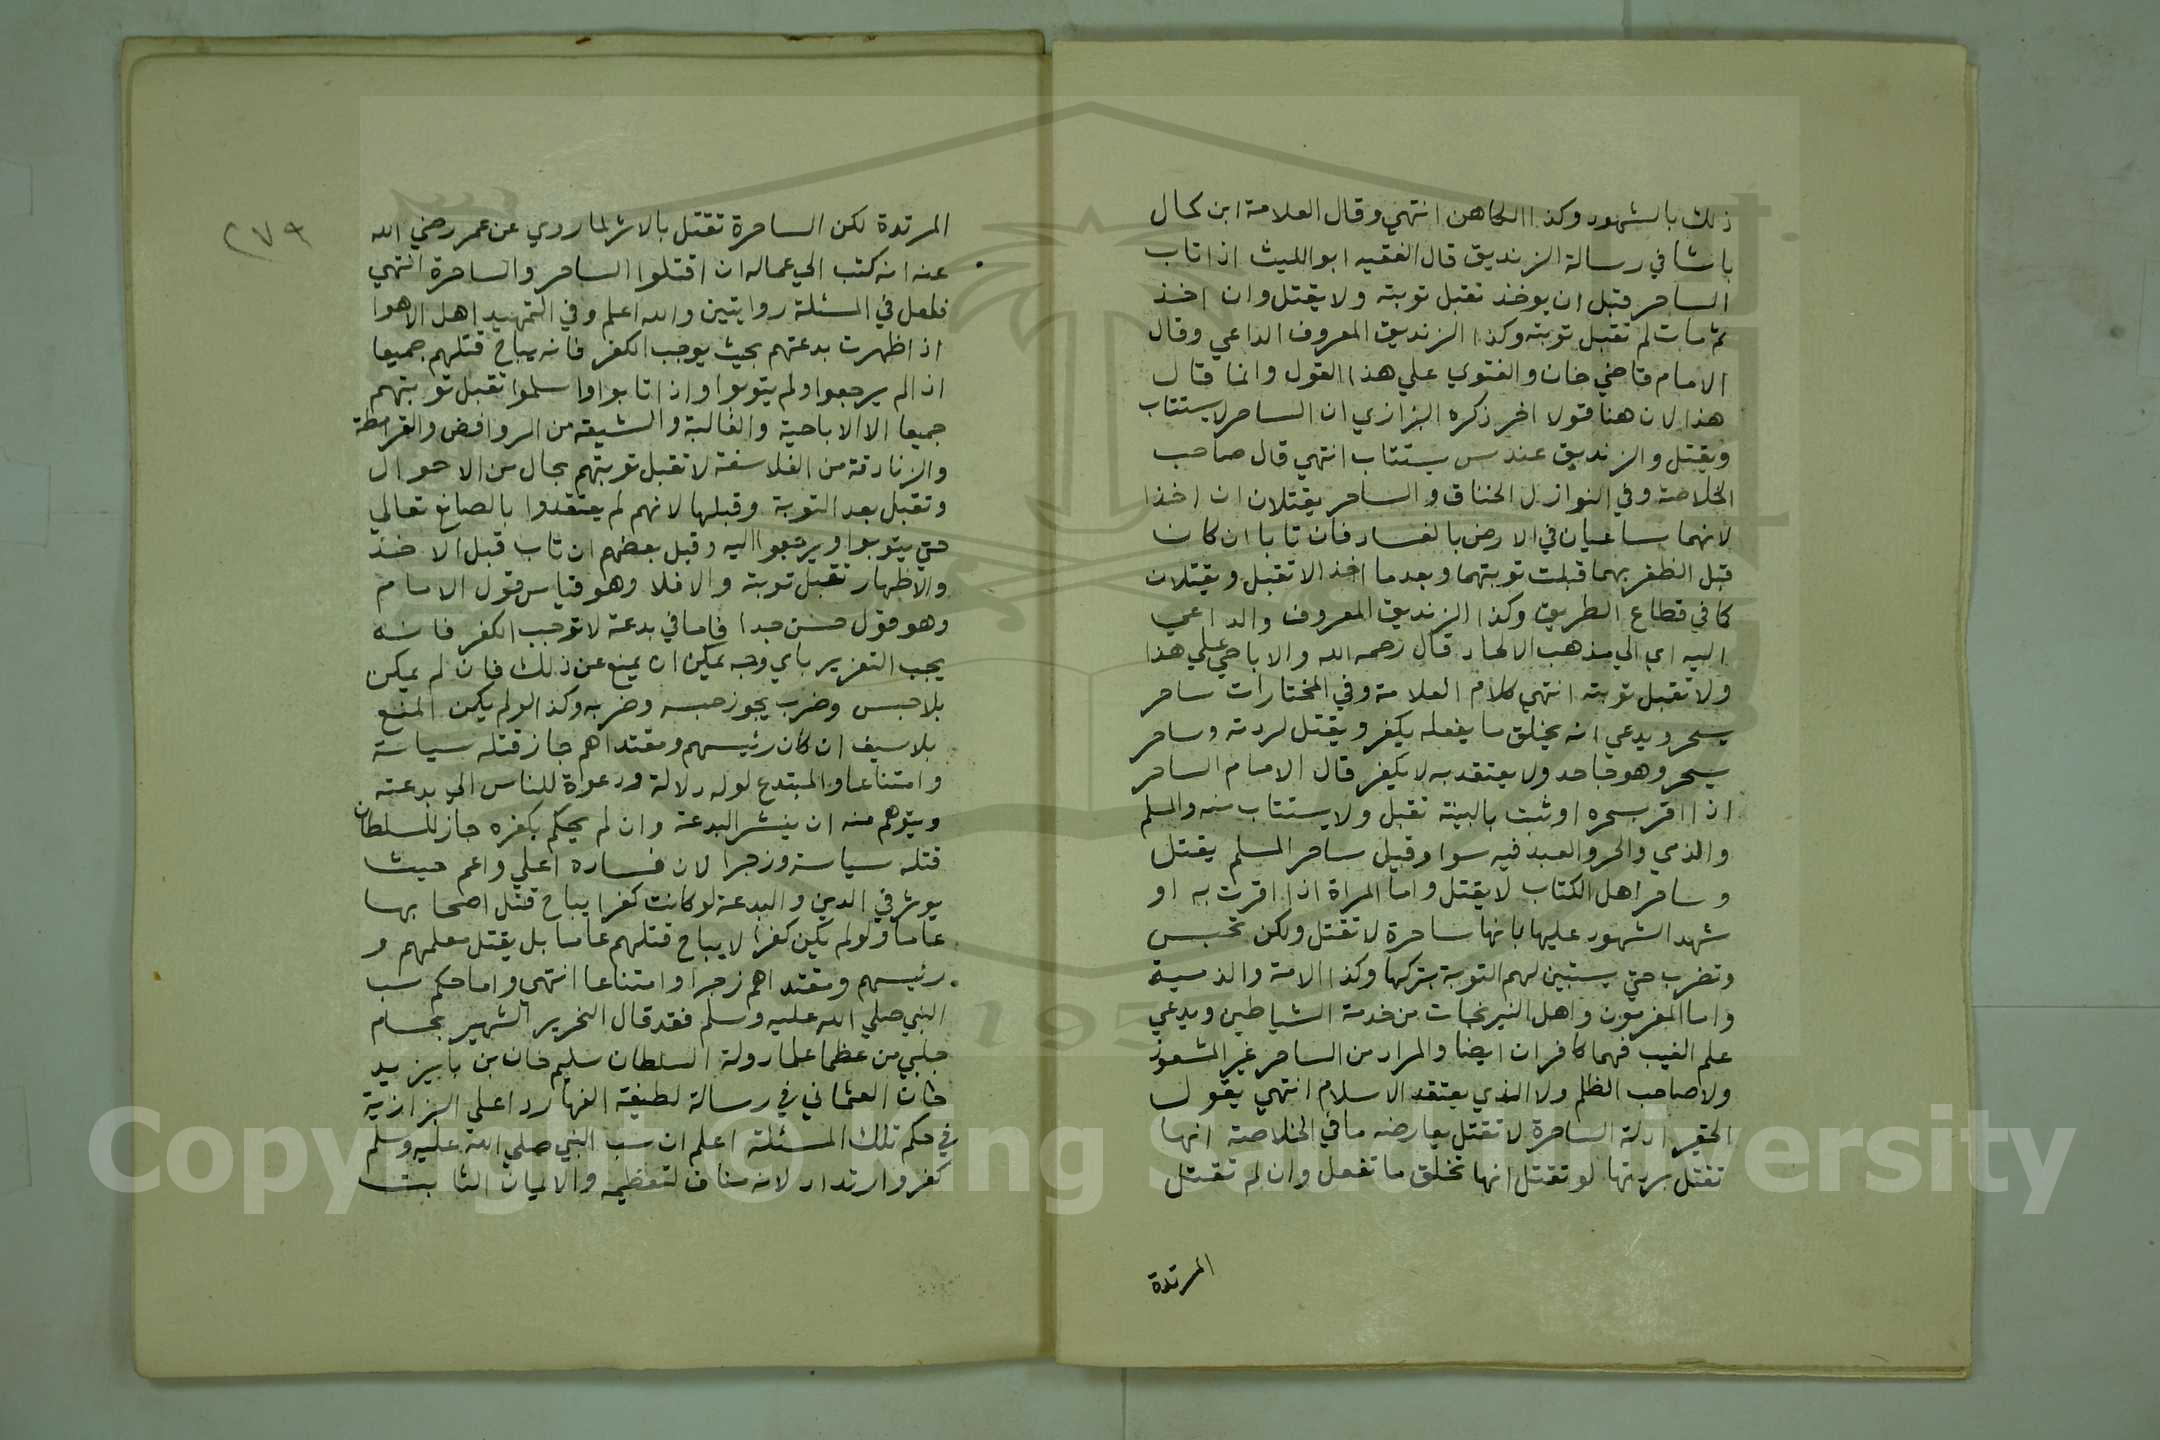 ذلك بالشهود وكذا الكاهن انتهي وقال العلامة ابن كمال
باشا في رسالة الزنديق قال الفقيه ابو الليث اذا تاب
الساحر قبل ان يوخذ تقبل توبته ولا يقتل وان اخذ
ثم تاب لم تقبل توبته وكذا الزنديق المعروف الداعي وقال
الامام قاضي خان والفتوي علي هذا القول وانما قال
هذا لان هنا قولا اخر ذكره البزازي ان الساحر لا يستتاب
ويقتل والزنديق عند س يستتاب انتهي قال صاحب
الخلاصة وفي النوازل الخناق والساحر يقتلان ان اخذا
لانهما ساعيان في الارض بالفساد فان تابا ان كان
قبل الظفر بهما قبلت توبتهما وبعدما اخذ الا تقبل ويقتلان
كما في قطاع الطريق وكذا الزنديق المعروف والداعي
اليه اي الي مذهب الالحاد قال رحمه الله والاباحي علي هذا
ولا تقبل توبته انتهي كلام العلامة وفي المختارات ساحر
يسحر ويدعي انه يخلق ما يفعله يكفر ويقتل لردته وساحر
يسحر وهو جاحد ولا يعتقد به لا يكفر قال الامام الساحر
اذا اقر بسحره او ثبت بالبينة تقبل ولا يستتاب منه والمسلم
والذمي والحر والعبد فيه سواء وقيل ساحر المسلم يقتل
وساحر اهل الكتاب لا يقتل واما المراة اذا اقرت به او
شهد الشهود عليها بانها ساحرة لا تقتل ولكن تحبس
وتضرب حتي يستبين لهم التوبة بتركها وكذا الامة والذمية
واما المغرمون واهل النيرنجات من خدمة الشياطين ويدعي
علم الغيب فهما كافران ايضا والمراد من الساحر غير المشعوذ
ولا صاحب الظلم ولا الذي يعتقد الاسلام انتهي يقول
الحقير ادلة الساحرة لا تقتل يعارضه ما في الخلاصة انها
تقتل بردتها لو تقتل انها تخلق ما تفعل وان لم تقتل
المرتدة
٢٧٩
المرتدة لكن الساحرة تقتل بالاثر لما روي عن عمر رضي الله
عنه انه كتب الي عماله ان اقتلوا الساحر والساحرة انتهي
فلعل في المسئلة روايتين والله اعلم وفي التمهيد اهل الاهوا
اذا ظهرت بدعتهم بحيث يوجب الكفر فانه يباح قتلهم جميعا
اذا لم يرجعوا ولم يتوبوا واذا تابوا واسلموا تقبل توبتهم
جميعا الا الاباحية والغالية والشيعة من الروافض والقرامطة
والزنادقة من الفلاسفة لا تقبل توبتهم بحال من الاحوال
وتقبل بعد التوبة وقبلها لانهم لم يعتقدوا بالصانع تعالي
حتي يتوبوا ويرجعوا اليه وقيل بعضهم ان تاب قبل الاخذ
والاظهار تقبل توبته والا فلا وهو قياس قول الامام
وهو قول حسن جدا فاما في بدعة لا توجب الكفر فانه
يجب التعزير باي وجه يمكن ان يمنع عن ذلك فان لم يمكن
بلا حبس وضرب يجوز حبسه وضربه وكذا لو لم يكن المنع
بلا سيف ان كان رئيسهم ومقتداهم جاز قتله سياسة
وامتناعا والمبتدع لو له دلالة ودعوة للناس الي بدعته
ويتوهم منه ان ينشر البدعة وان لم يحكم بكفره جاز للسلطان
قتله سياسة وزجرا لان فساده اعلي واعم حيث
يوثر في الدين والبدعة لو كانت كفرا يباح قتل اصحابها
عاما ولو لم يكن كفرا لا يباح قتلهم عاما بل يقتل معلمهم و
رئيسهم ومقتداهم زجرا وامتناعا انتهي واما حكم سب
النبي صلي الله عليه وسلم فقد قال النحرير الشهير بحسام
جلبي من عظما علما دولة السلطان سليم خان بن بايزيد
خان العثماني في رسالة لطيفة الفها ردا علي البزازية
في حكم تلك المسئلة اعلم ان سب النبي صلي الله عليه وسلم
كفر وارتداد لانه مناف لتعظيمه والايمان الثابت
Copyright © King Saud University
1957